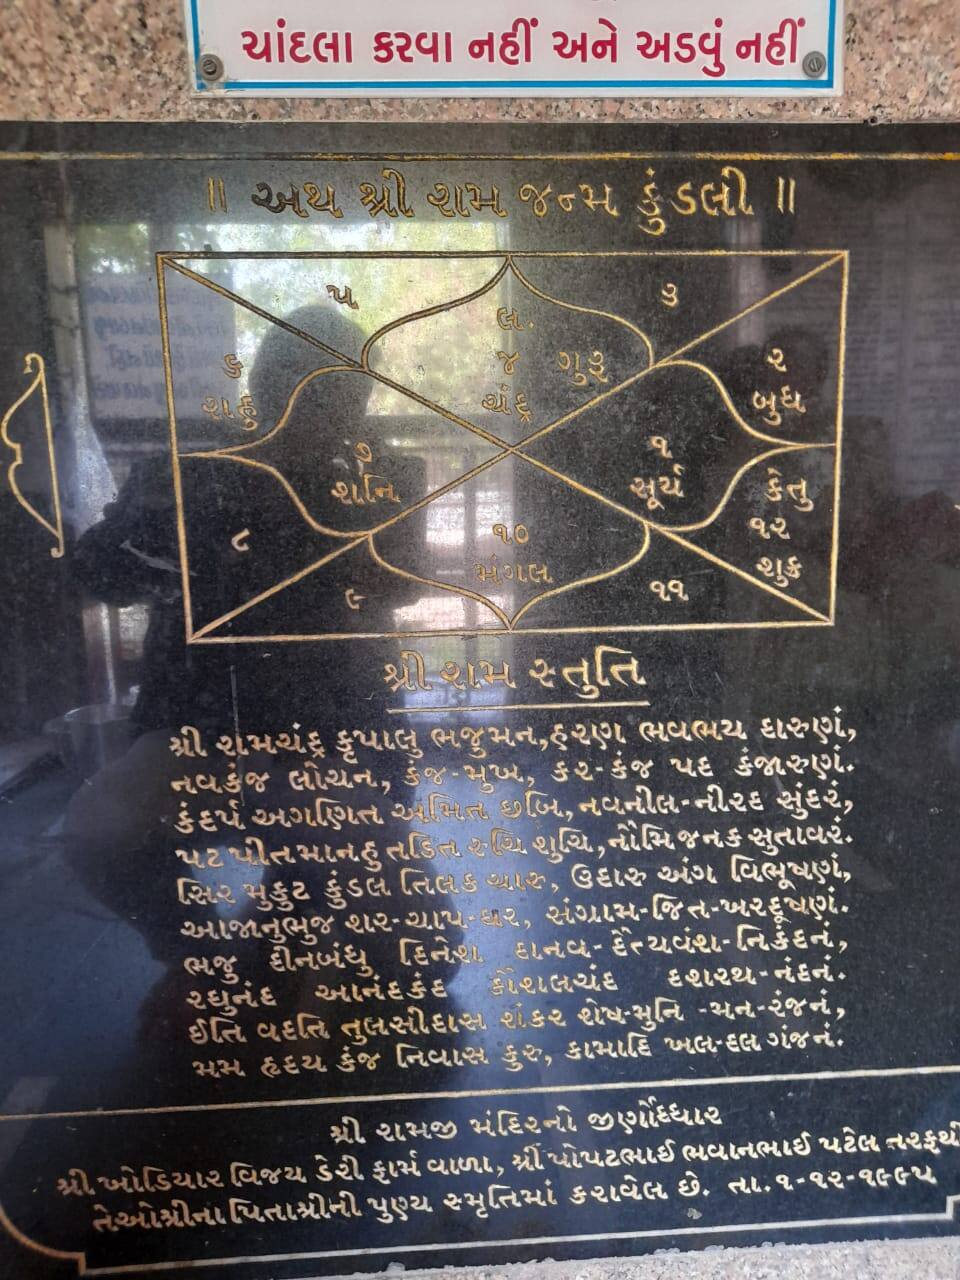 ચાંદલા કરવા નહીં અને અડવું નહીં
॥ અથ શ્રી રામ જન્મ કુંડલી ॥
૫
૩
લ.
૪ ગુરૂ
ચંદ્ર
૬
રાહુ
૨
બુધ
૭
શનિ
૧
સૂર્ય
કેતુ
૧૨
શુક્ર
૮
૧૦
મંગલ
૯
૧૧
શ્રી રામ સ્તુતિ
શ્રી રામચંદ્ર કૃપાલુ ભજુમન, હરણ ભવભય દારુણં,
નવકંજ લોચન, કંજ-મુખ, કર-કંજ પદ કંજારુણં.
કંદર્પ અગણિત અમિત છબિ, નવનીલ-નીરદ સુંદરં,
પટ પીતમાનહુ તડિત રુચિ શુચિ, નૌમિ જનક સુતાવરં.
સિર મુકુટ કુંડલ તિલક ચારુ, ઉદારુ અંગ વિભૂષણં,
આજાનુભુજ શર-ચાપ-ધર, સંગ્રામ-જિત-ખરદૂષણં.
ભજુ દીનબંધુ દિનેશ દાનવ-દૈત્યવંશ-નિકંદનં,
રઘુનંદ આનંદકંદ કૌશલચંદ દશરથ-નંદનં.
ઈતિ વદતિ તુલસીદાસ શંકર શેષ-મુનિ -મન-રંજનં,
મમ હૃદય કુંજ નિવાસ કુરુ, કામાદિ ખલ-દલ ગંજનં.
શ્રી રામજી મંદિરનો જીર્ણોધ્ધાર
શ્રી ખોડિયાર વિજય ડેરી ફાર્મ વાળા, શ્રી પોપટભાઈ ભવાનભાઈ પટેલ તરફથી
તેઓશ્રીના પિતાશ્રીની પુણ્ય સ્મૃતિમાં કરાવેલ છે. તા. ૧-૧૨-૧૯૯૫